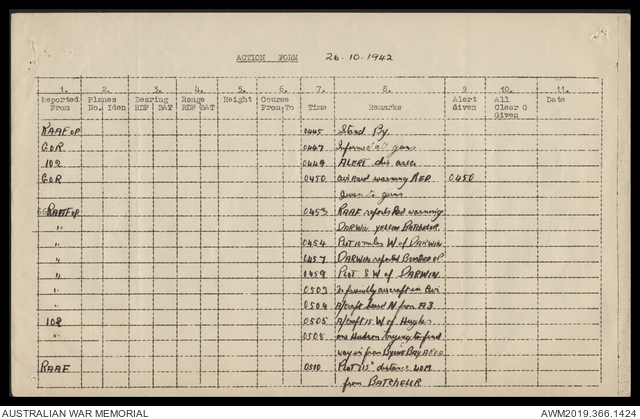 ACTION FORM 26.10.1942
1. 2. 3. 4. 5. 6. 7. 8. 9. 10. 11.
Reported From Planes No. Iden Bearing RDF BAT Range RDF BAT Height Course From To Time Remarks Alert Given All Clear G Given Date
RAAF OP 0445 Stand By.
GOR 0447 Informed all guns
102 0449 ALERT this area
GOR 0450 warning RED 0450
given to guns
RAAF OP 0453 RAAF reports Red warning
" DARWIN yellow BATCHELOR.
" 0454 Plot 10 miles W of DARWIN
" 0457 DARWIN reported Bombed OP
" 0459 Plot S W of DARWIN.
" 0503 No friendly aircraft in
" 0504 A/Craft heard N from A3.
102 0505 A/Craft 15 W of Hughes
" 0508 one Hudson trying to find
way in from BYNOE BAY AREA
RAAF 0510 Plot 215° distance 40M
from BATCHELOR
AUSTRALIAN WAR MEMORIAL AWM2019.366.1424